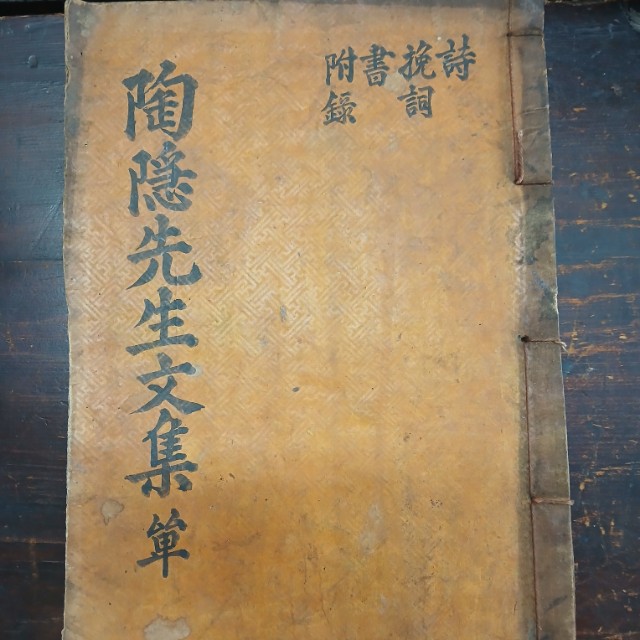 詩
挽詞
書
附錄
陶隱先生文集 単